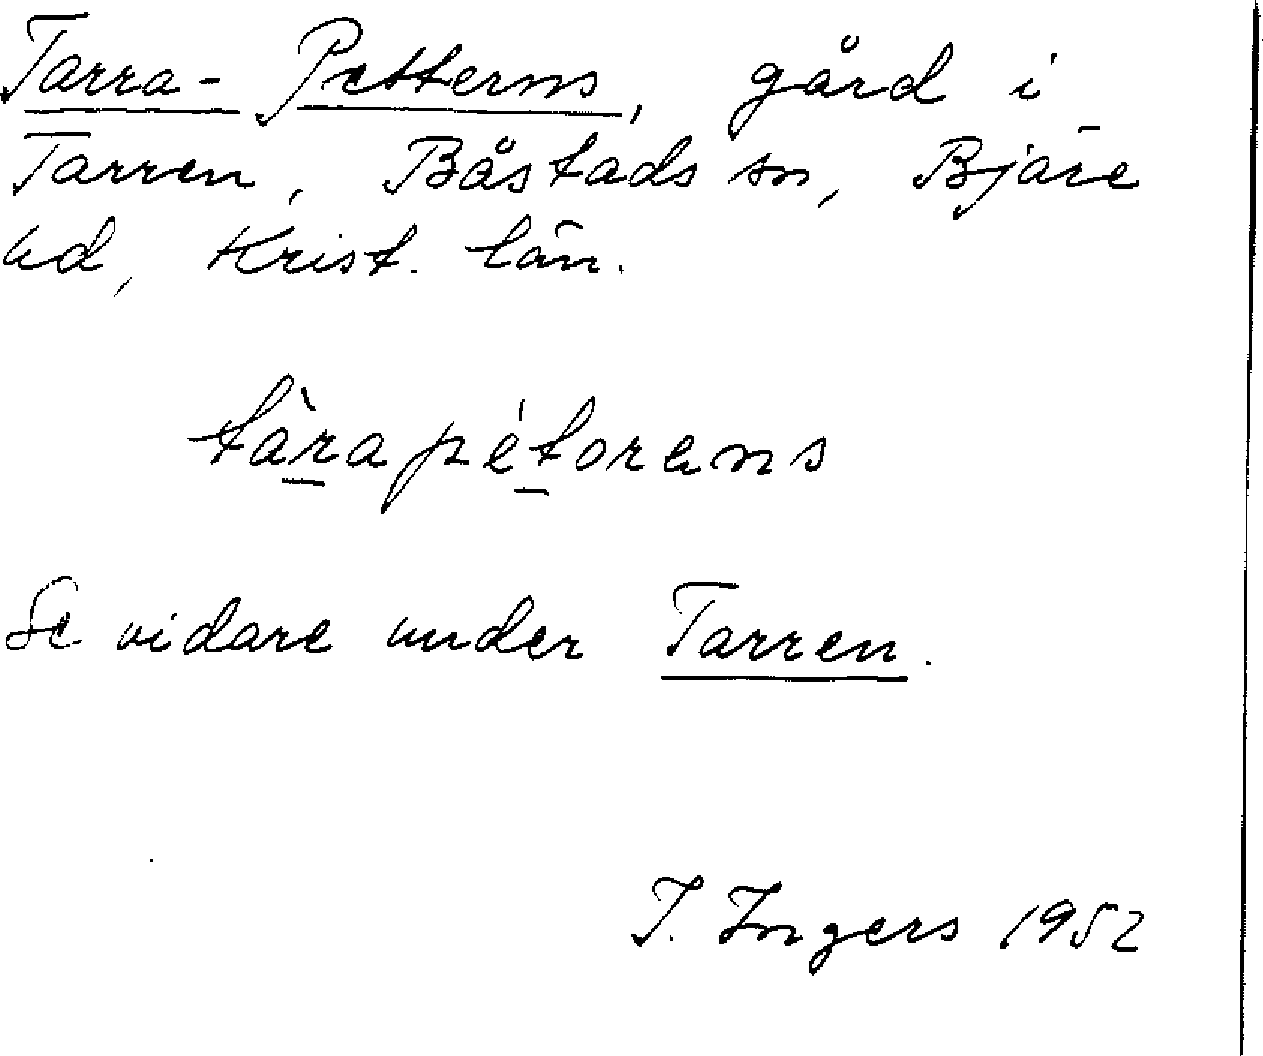 Tarra-Petterns, gård i
Tarren, Båstads sn, Bjäre
hd, Krist. län.
tàrapétorens
Se vidare under Tarren.
I. Ingers 1952